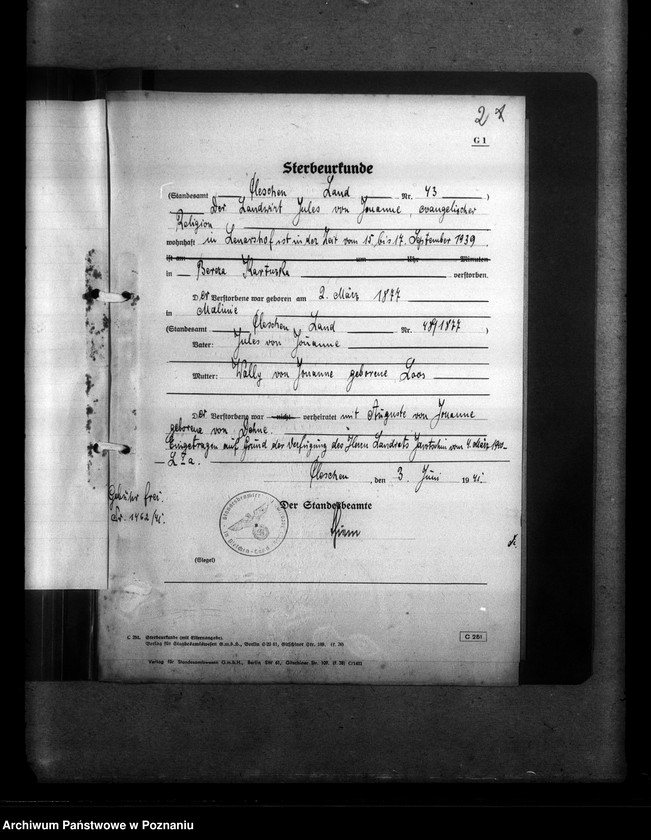 2
G 1
Sterbeurkunde
(Standesamt Pleschen Land Nr. 43 )
Der Landwirt Jules von Jouanne, evangelischer
Religion
wohnhaft in Lenarshof ist in der Zeit vom 15. bis 17. September 1939
ist am um Uhr Minuten
in Bereza Kartuska verstorben.
Der Verstorbene war geboren am 2. März 1877
in Malinie
(Standesamt Pleschen Land Nr. 48/1877 )
Vater: Jules von Jouanne
Mutter: Wally von Jouanne geborene Loos
Der Verstorbene war nicht verheiratet mit Auguste von Jouanne
geborene von Dehne.
Eingetragen auf Grund der Verfügung des Herrn Landrats Jarotschin vom 4. März
Pleschen, den 3 Juni 1941.
Gebühr frei.
1462/41.
Der Standesbeamte
(Siegel)
C 251. Sterbeurkunde (mit Elternangabe).
Verlag für Standesamtswesen G.m.b.H., Berlin SW 61, Gitschiner Str. 109.
C 251
Verlag für Standesamtswesen G.m.b.H., Berlin SW 61, Gitschiner Str. 109.
Archiwum Państwowe w Poznaniu